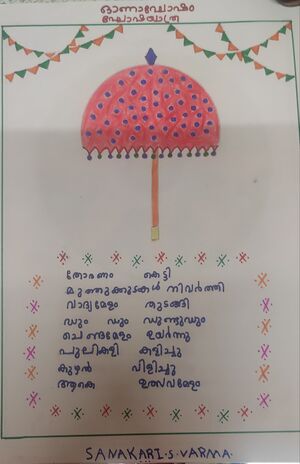 ഓണാഘോഷം
ഘോഷയാത്ര
തോരണം കെട്ടി
മുത്തുക്കുടകൾ നിവർത്തി
വാദ്യമേളം തുടങ്ങി
ഡും ഡും ഡുണ്ടുഡും
ചെണ്ടമേളം ഉയർന്നു
പുലികളി കളിച്ചു
കുഴൽ വിളിച്ചു
ആകെ ഉത്സവമേളം
SANAKARI.S.VARMA.